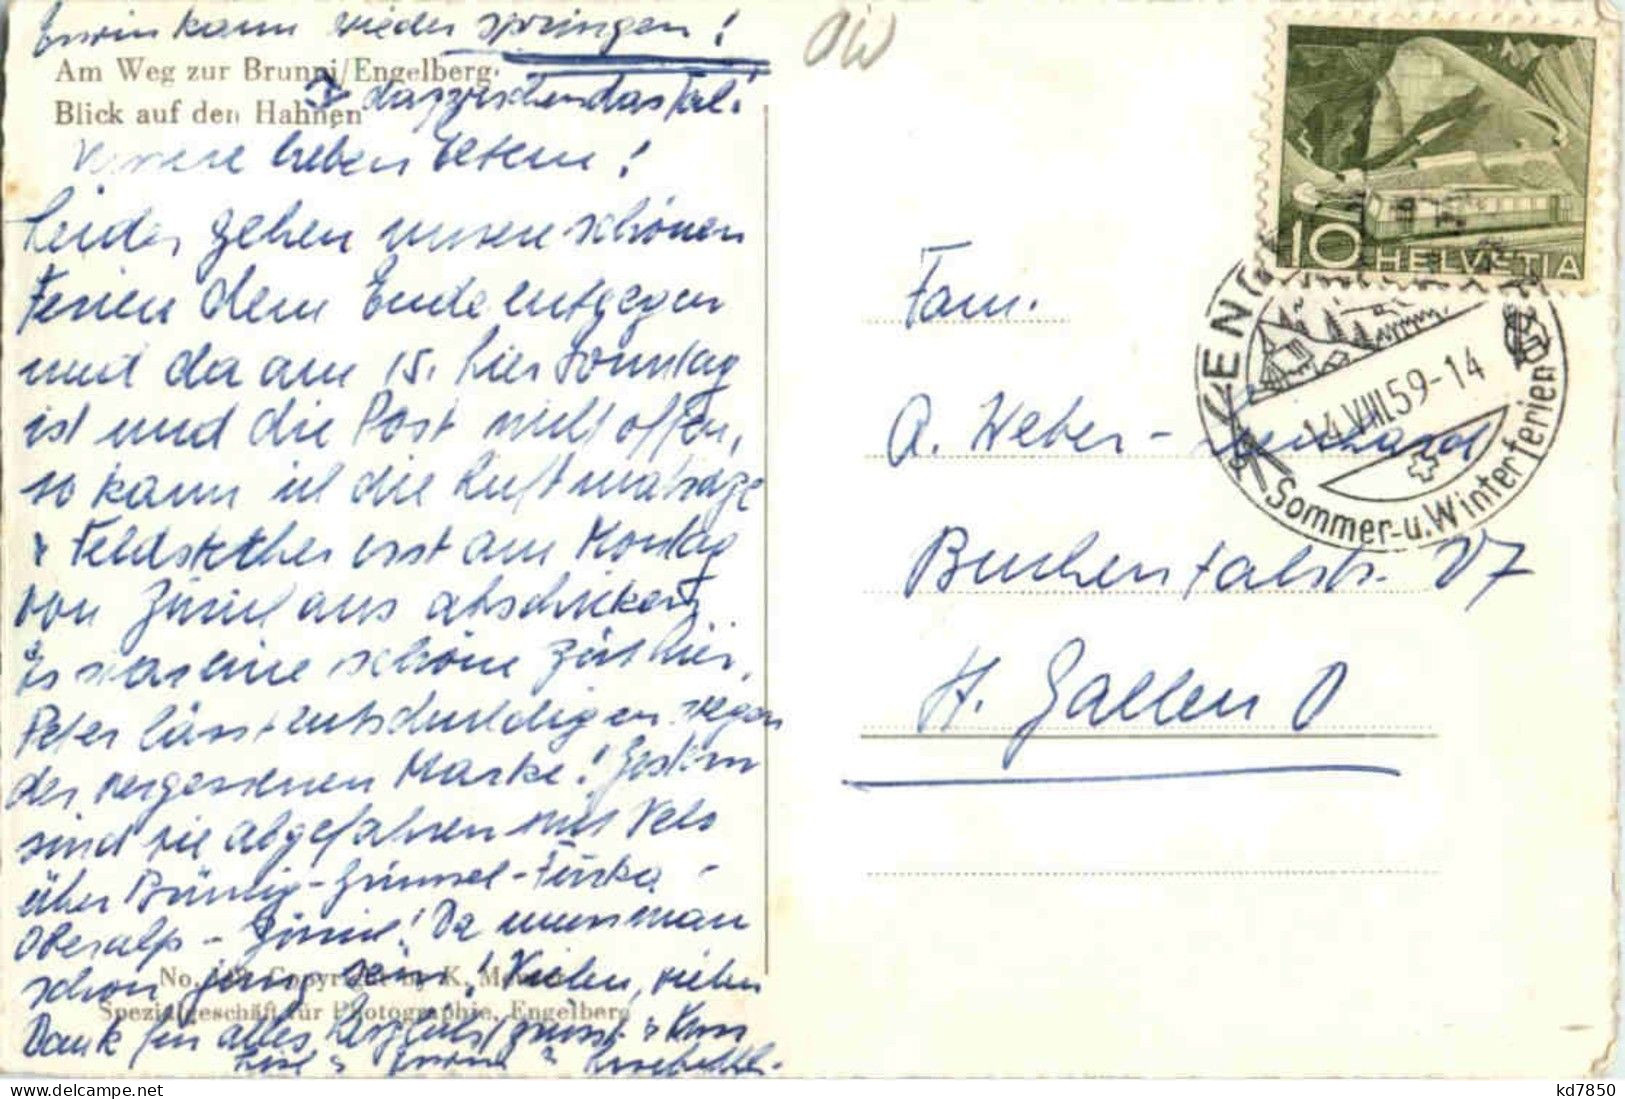 Erwin kann wieder springen!
Am Weg zur Brunni/Engelberg.
Blick auf den Hahnen
dazwischen das Tal!
Unsere lieben Eltern!
Leider gehen unsere schönen
Ferien dem Ende entgegen
und da am 15. hier Sonntag
ist und die Post nicht offen,
so kann ich die Luftmatraze
& Feldstecher erst am Montag
von Zürich aus abschicken.
Es war eine schöne Zeit hier.
Peter lässt entschuldigen wegen
der vergessenen Marke! Gestern
sind sie abgefahren mit Velo
über Brünig - Grimsel - Furka -
Oberalp - Zürich! Da muss man
schon jung sein! Vielen, vielen
No. Copyright by K.
Spezialgeschäft für Photographie, Engelberg
Dank für alles, herzlichst grüsst & Kuss
&
OW
10 HELVETIA
14.VIII.59-14
Sommer-u.Winterferien
Fam.
A. Weber-
Buchentalstr. 27
St. Gallen O
kd7850